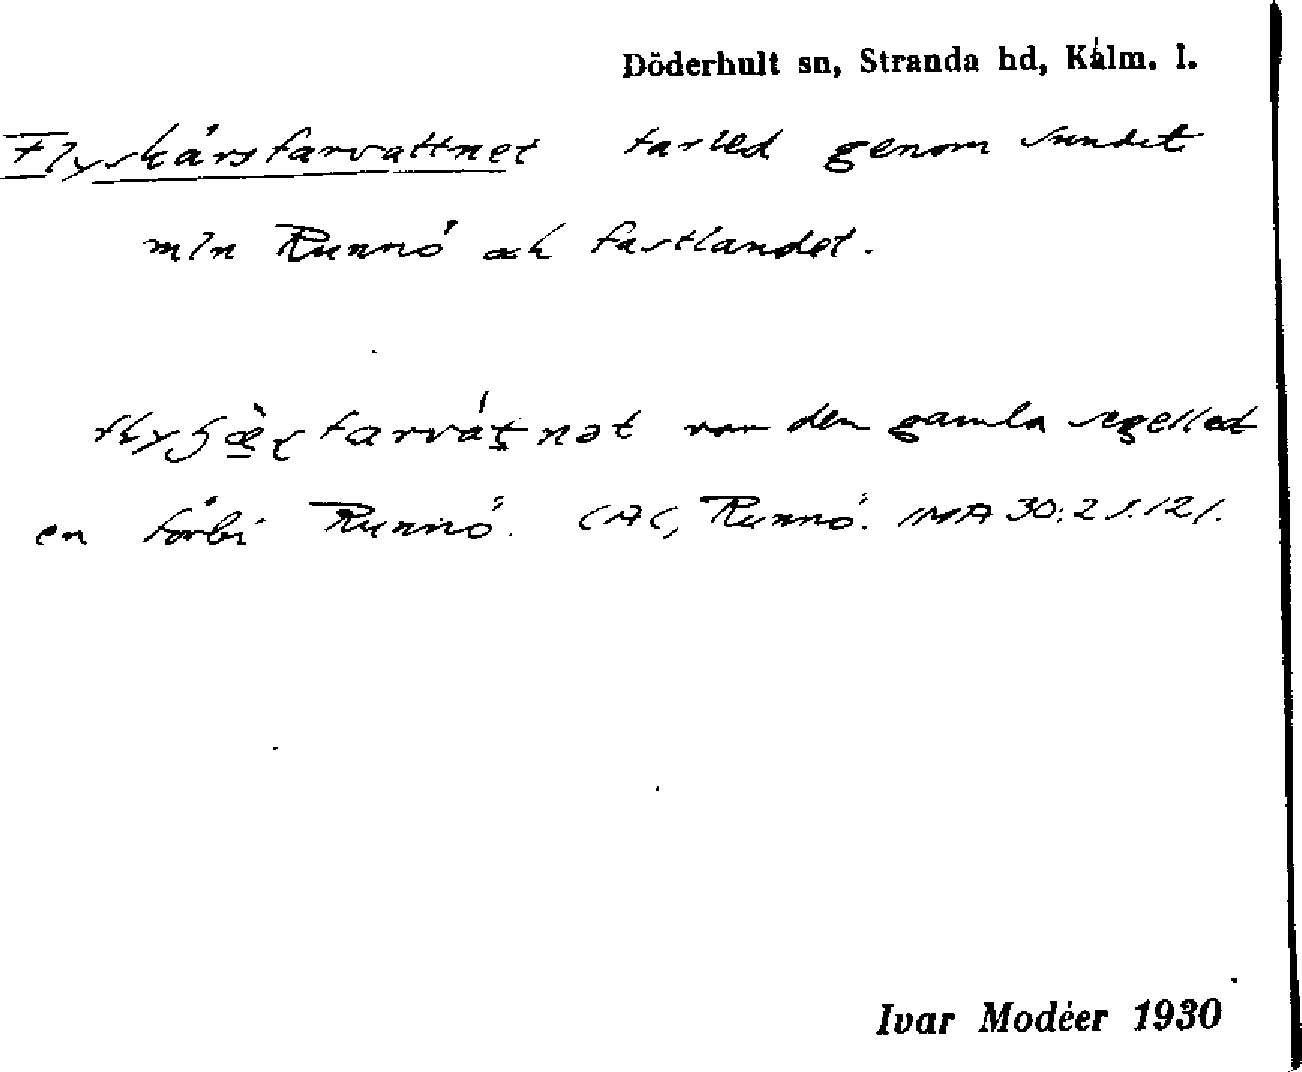 Döderhult sn, Stranda hd, Kalm. l.
Flyskärsfarvattnet farled genom sundet
mln Runnö och fastlandet.
farvátnət var den gamla segelled
en förbi Runnö. Runnö. IMA 30:2 s. 121.
Ivar Modéer 1930